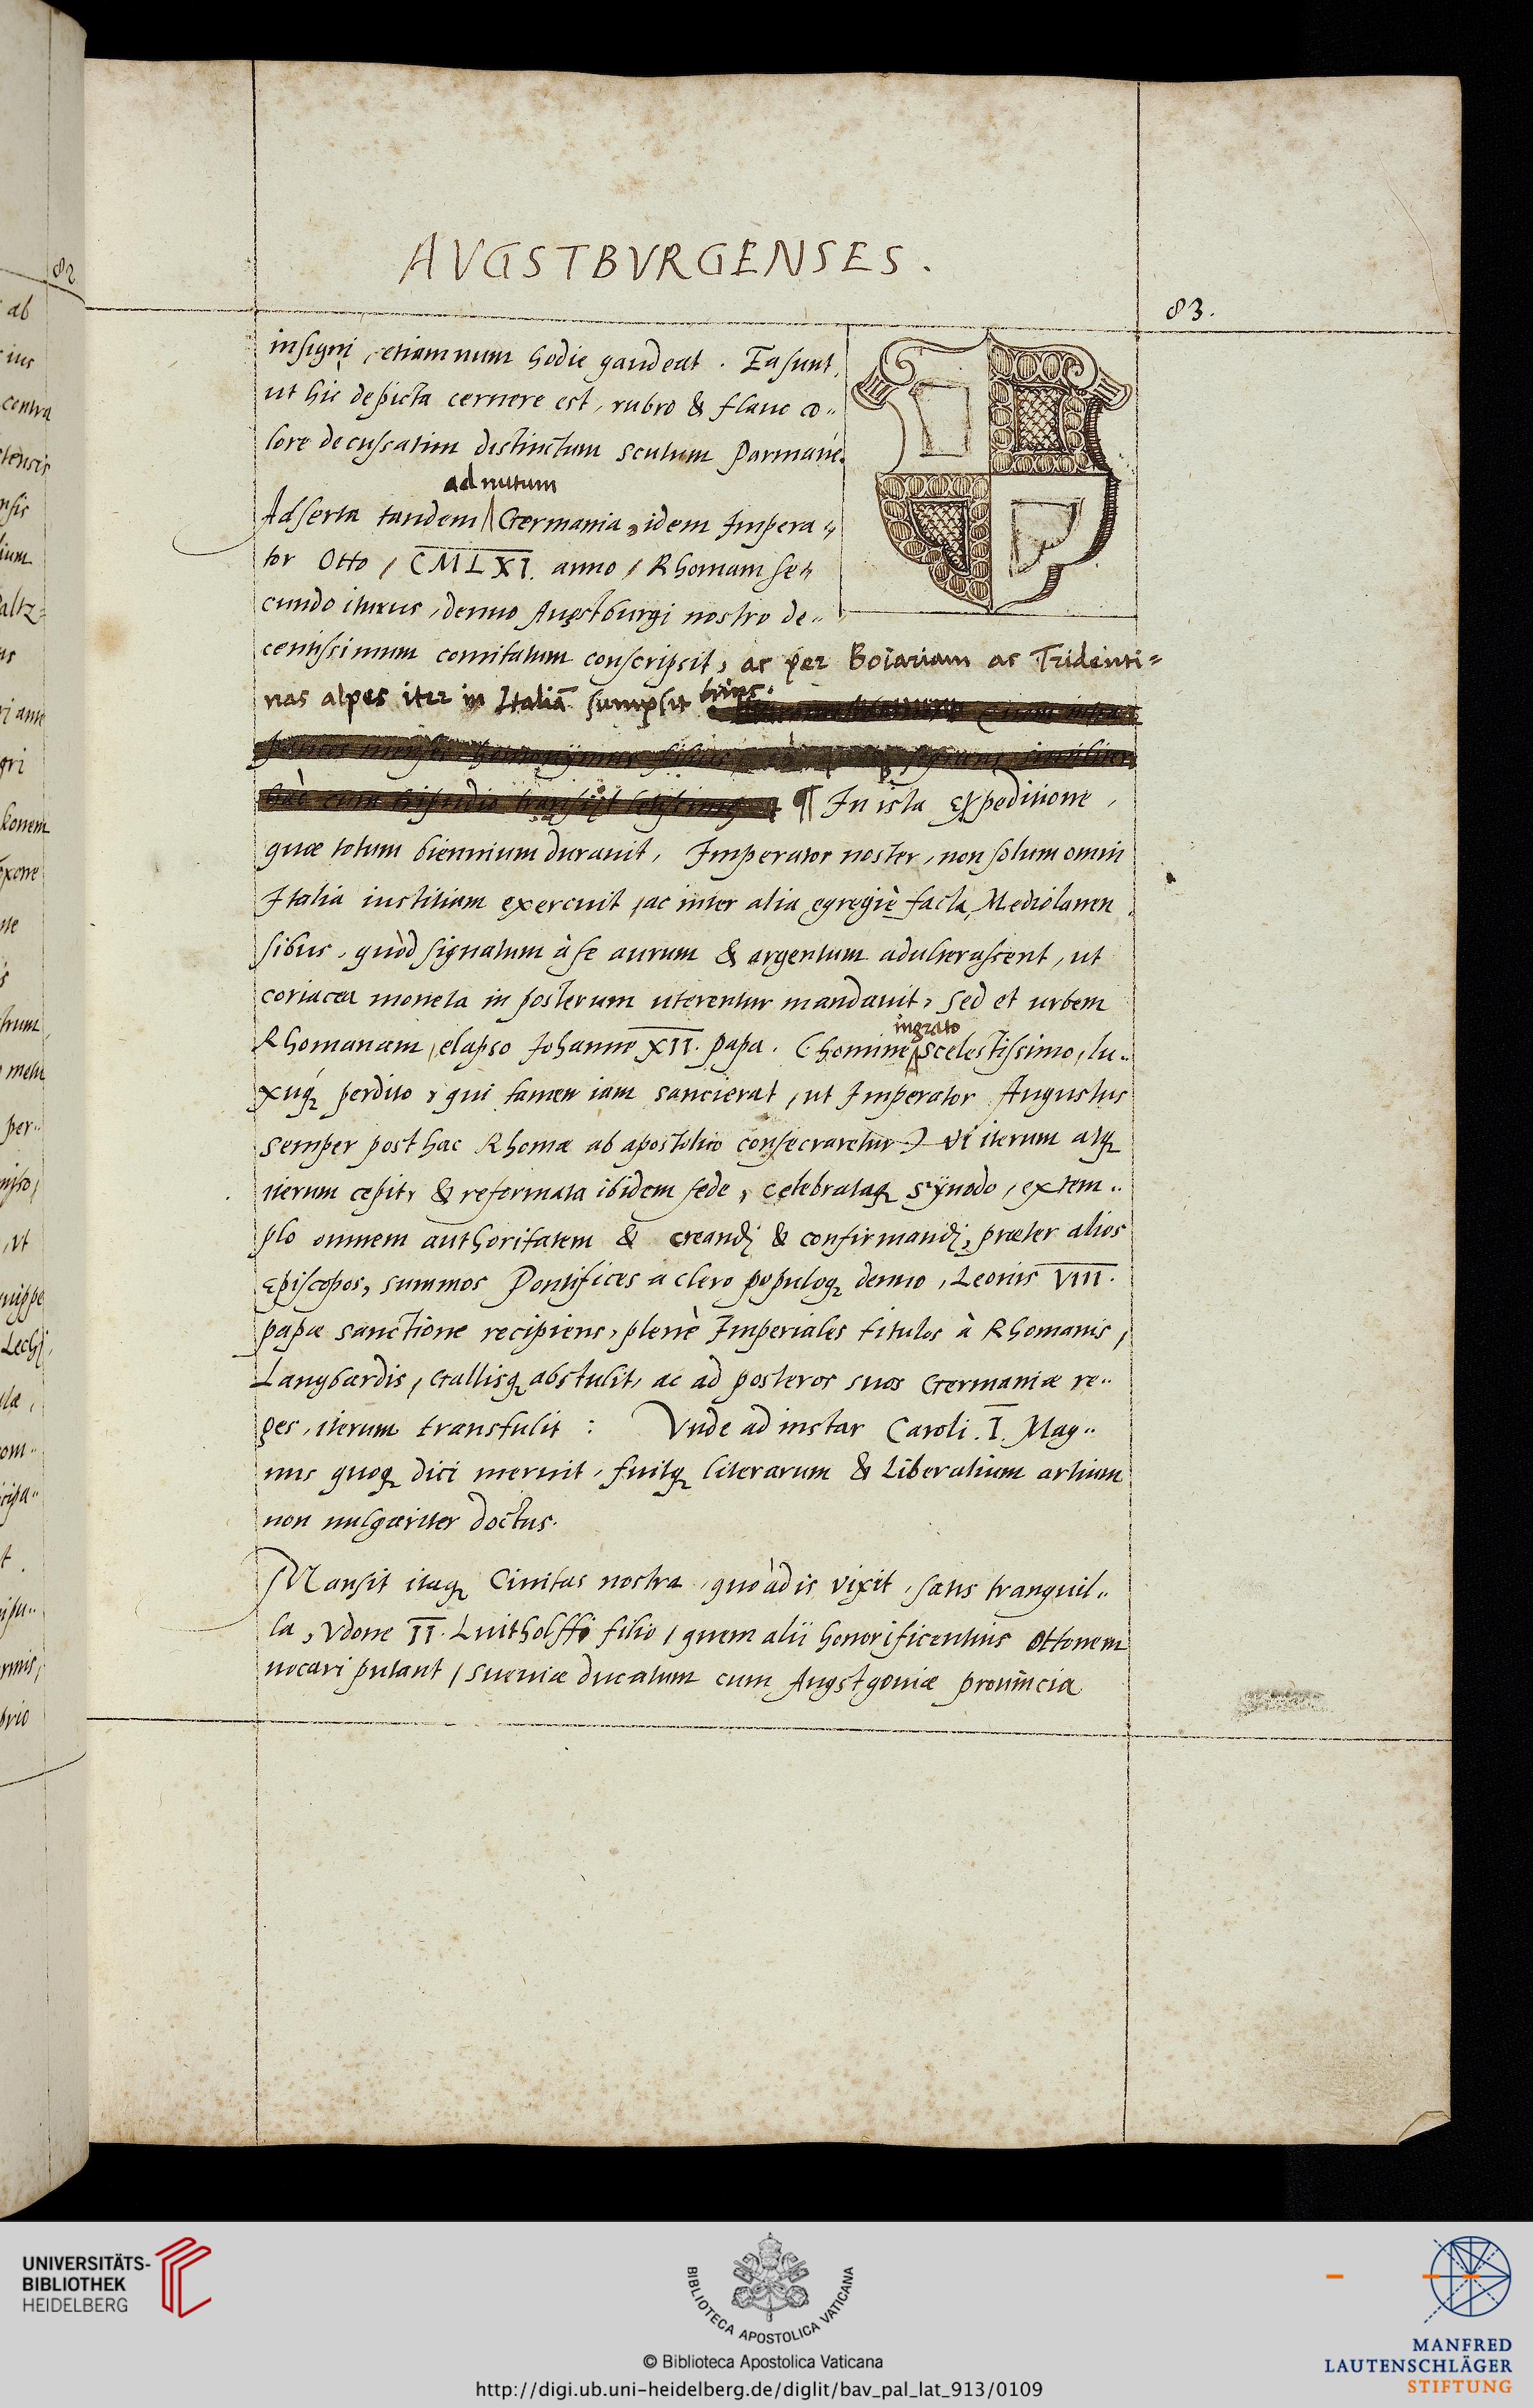 AVGSTBVRGENSES.
83.
insigni, etiamnum hodie gaudeat. Ea sunt,
ut hic depicta cernere est, rubro & flauo co„
lore decussatim distinctum scutum Parmaue.
ad nutum
Adserta tandem Germania, idem Impera„
tor Otto, CMLXI. anno, Rhomam se„
cundo iturus, denuo Augstburgi nostro de„
centissimum comitatum conscripsit, ac per Boiariam ac Tridenti=
nas alpes iter in Italiā sumpsit
¶ In ista Expeditione,
quæ totum biennium durauit, Imperator noster, non solum omni
Italia iustitiam exercuit, ac inter alia egregiè facta, Mediolanen
sibus, quòd signatum à se aurum & argentum adulterassent, ut
coriacea moneta in posterum uterentur mandauit, sed et urbem
ingrato
Rhomanam, elapso Johanne XII. papa. (homine scelestissimo, lu„
xuq; perdito, qui tamen iam sancierat, ut Imperator Augustus
semper posthac Rhomæ ab apostolico consecraretur) vi iterum atq;
iterum cepit, & reformata ibidem sede, celebrataq; Synodo, extem„
plo omnem authoritatem & creandi & confirmandi, præter alios
Episcopos, summos Pontifices a clero populoq; denuo, Leonis VIII.
papæ sanctione recipiens, plenè Imperiales titulos à Rhomanis,
Langbardis, Gallisq; abstulit, ac ad posteros suos Germaniæ re„
ges, iterum transtulit: Vnde ad instar Caroli. I. Mag„
nus quoq; dici meruit, fuitq; literarum & Liberalium artium
non uulgariter doctus.
Mansit itaq; Ciuitas nostra, quoàd is vixit, satis tranquil„
la, Vdone II. Luitholffi filio, quem alii honorificentius Ottonem
uocari putant, Sueuiæ ducatum cum Augstgouiæ prouincia
82
ab
contra
konem
trum
per„
vt
UNIVERSITÄTS-
BIBLIOTHEK
HEIDELBERG
BIBLIOTECA APOSTOLICA VATICANA
© Biblioteca Apostolica Vaticana
http://digi.ub.uni-heidelberg.de/diglit/bav_pal_lat_913/0109
MANFRED
LAUTENSCHLÄGER
STIFTUNG